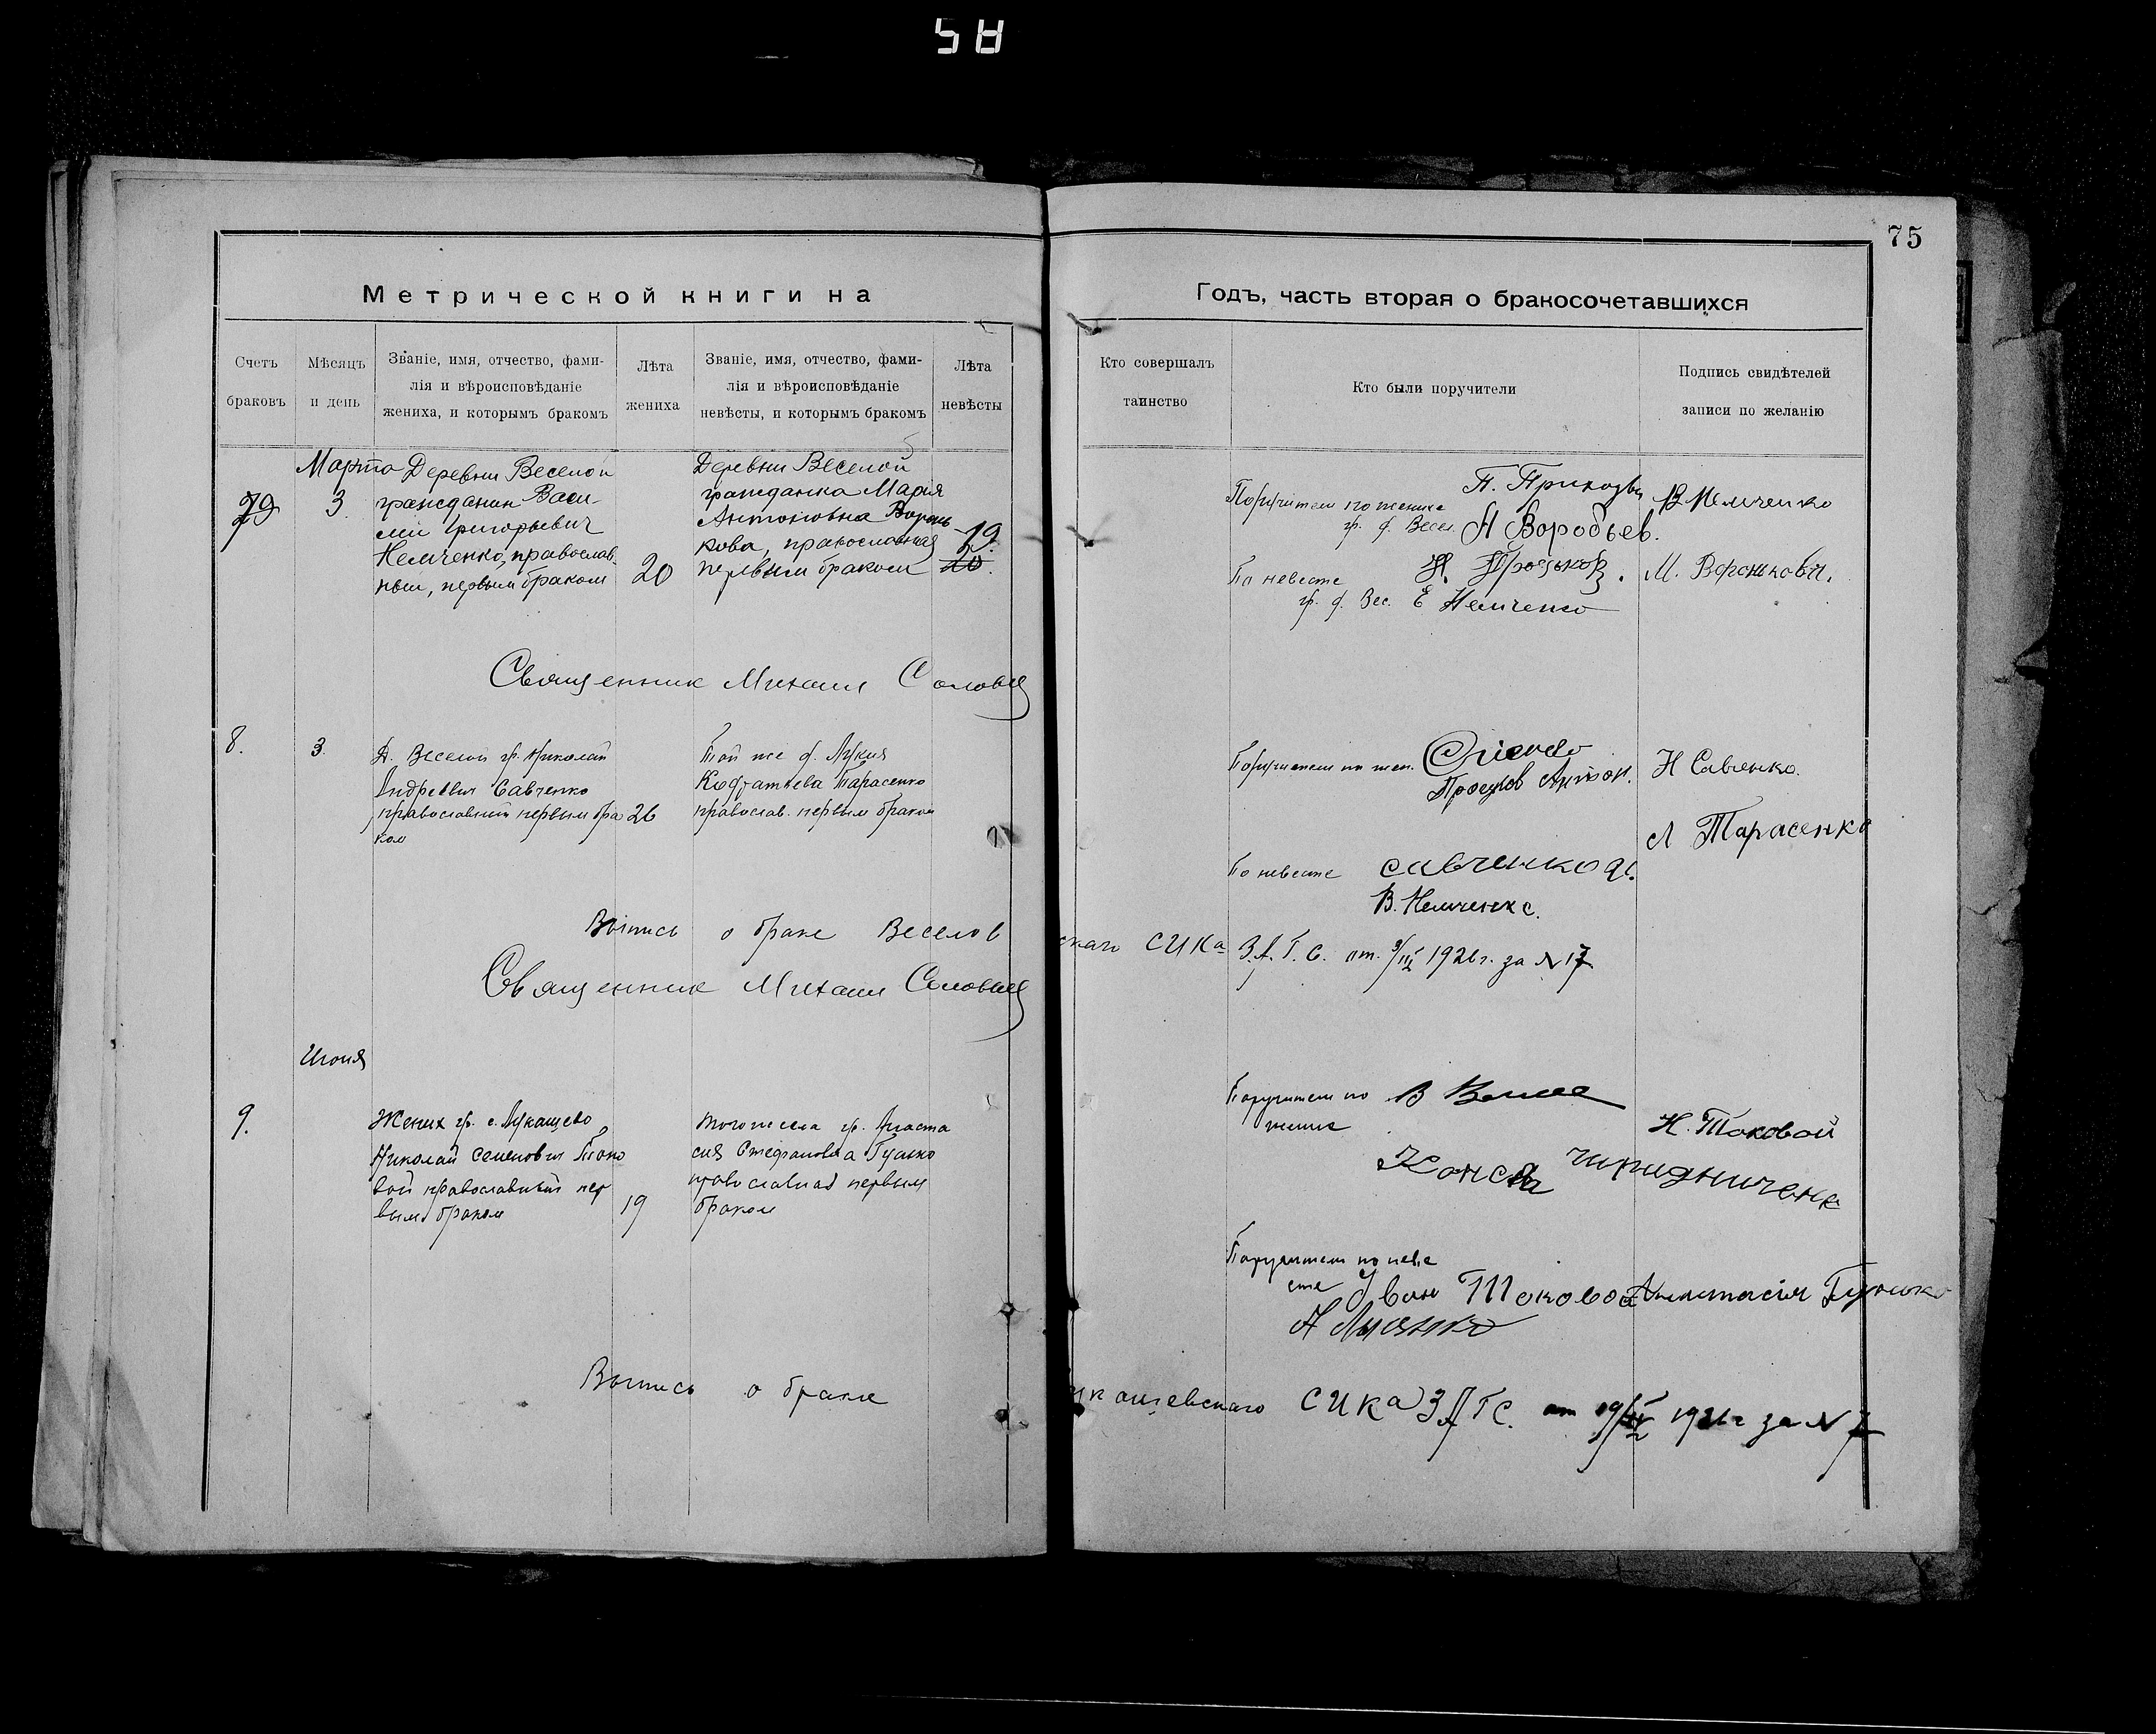 58
75
Метрической книги на
Годъ, часть вторая о бракосочетавшихся
Счетъ
браковъ
Мѣсяцъ
и день
Званіе, имя, отчество, фами-
лія и вѣроисповѣданіе
жениха, и которымъ бракомъ
Лѣта
жениха
Званіе, имя, отчество, фами-
лія и вѣроисповѣданіе
невѣсты, и которымъ бракомъ
Лѣта
невѣсты
Кто совершалъ
таинство
Кто были поручители
Подпись свидѣтелей
записи по желанію
Марта
3
Деревни Веселой
гражданин Васи
лий Григорьевич
Немченко, православ.
ный, первым браком
20
Деревни Веселой
гражданка Мария
Антоновна Воронь
кова, православная
первым браком
19.
20.
Поручители по жениху
гр. д. Весел.
Н Воробьев.
По невесте
гр. д. Вес. Е Немченко
В Немченко
М. Воронькова.
Священник Михаил
8.
3
Д. Веселой гр. Николай
Андреевич Савченко
православный первым бра
ком
26
Той же д. Лукия
Тарасенко
православ. первым браком
Поручители по жен.
Антон.
По невесте Савченко
В. Немченко.
Н Савченко.
Л Тарасенко
Выпись о браке Веселов
скаго СИКа З.А.Г.С. от 9/III 1926 г. за № 17
Священник Михаил
Июня
9.
Жених гр. с. Лукашево
Николай Семенович Токо
вой православный пер
вым браком
19
того же села гр. Анаста
сия Стефановна Гунько
православная первым
браком
Поручители по
жениху
В
Н. Токовой
Поручители по неве
сте Иван Токовой
Анастасія Гунько
Н Лысенко
Выпись о браке
укашевскаго СИКа ЗАГС. от 1926 г за № 7